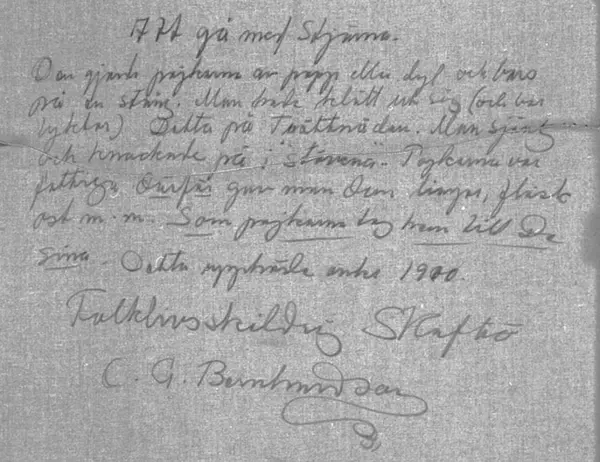 Att gå med Stjärna.
Den gjorde pojkarna av papp eller dyl och bars
på en stång. Man hade klätt ut sig (och bar
lyktor) Detta på Trättnädan. Man sjöng
och knackade på i Stövena. Pojkarna var
fattiga Därför gav man Dem limpor, fläsk
ost m. m. Som pojkarna tog hem till De
sina. Detta upphörde omkr 1900.
Folklivsskildrig Skaftö
C. G. Bernhardson